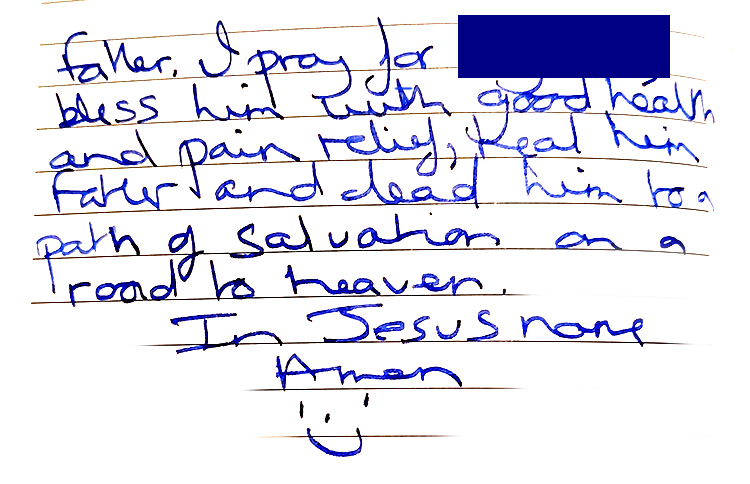 father. I pray for
bless him with good health
and pain relief, heal him
father and lead him to a
path of salvation on a
road to heaven.
In Jesus name
Amen